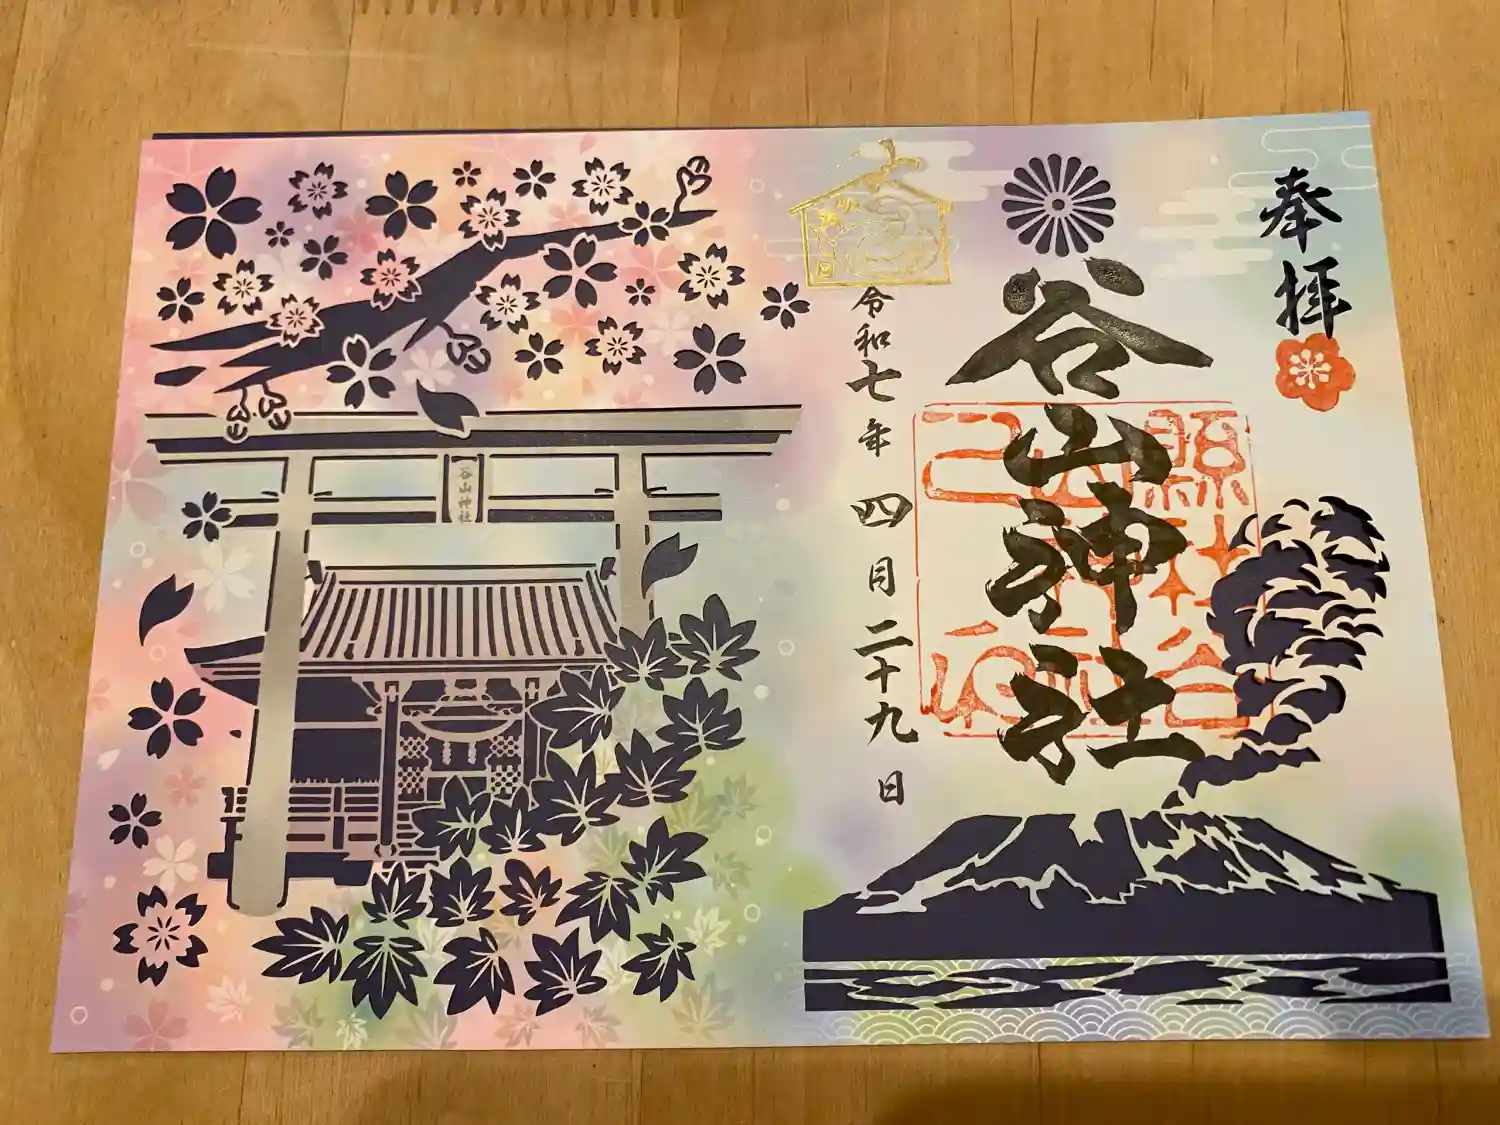 奉拝
谷山神社
令和七年 四月二十九日
谷山神社